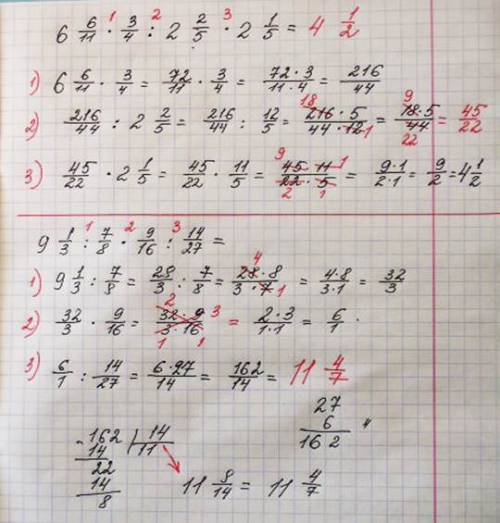 6 6/11 · 3/4 : 2 2/5 · 2 1/5 = 4 1/2
1) 6 6/11 · 3/4 = 72/11 · 3/4 = 72·3/11·4 = 216/44
2) 216/44 : 2 2/5 = 216/44 : 12/5 = 216·5/44·12 = 18·5/44 = 45/22
3) 45/22 · 2 1/5 = 45/22 · 11/5 = 45·11/22·5 = 9·1/2·1 = 9/2 = 4 1/2
9 1/3 : 7/8 · 9/16 : 14/27 =
1) 9 1/3 : 7/8 = 28/3 : 7/8 = 28·8/3·7 = 4·8/3·1 = 32/3
2) 32/3 · 9/16 = 32·9/3·16 = 2·3/1·1 = 6/1
3) 6/1 : 14/27 = 6·27/14 = 162/14 = 11 4/7
27
6
162
162 | 14
14 11
22
14
8
11 8/14 = 11 4/7